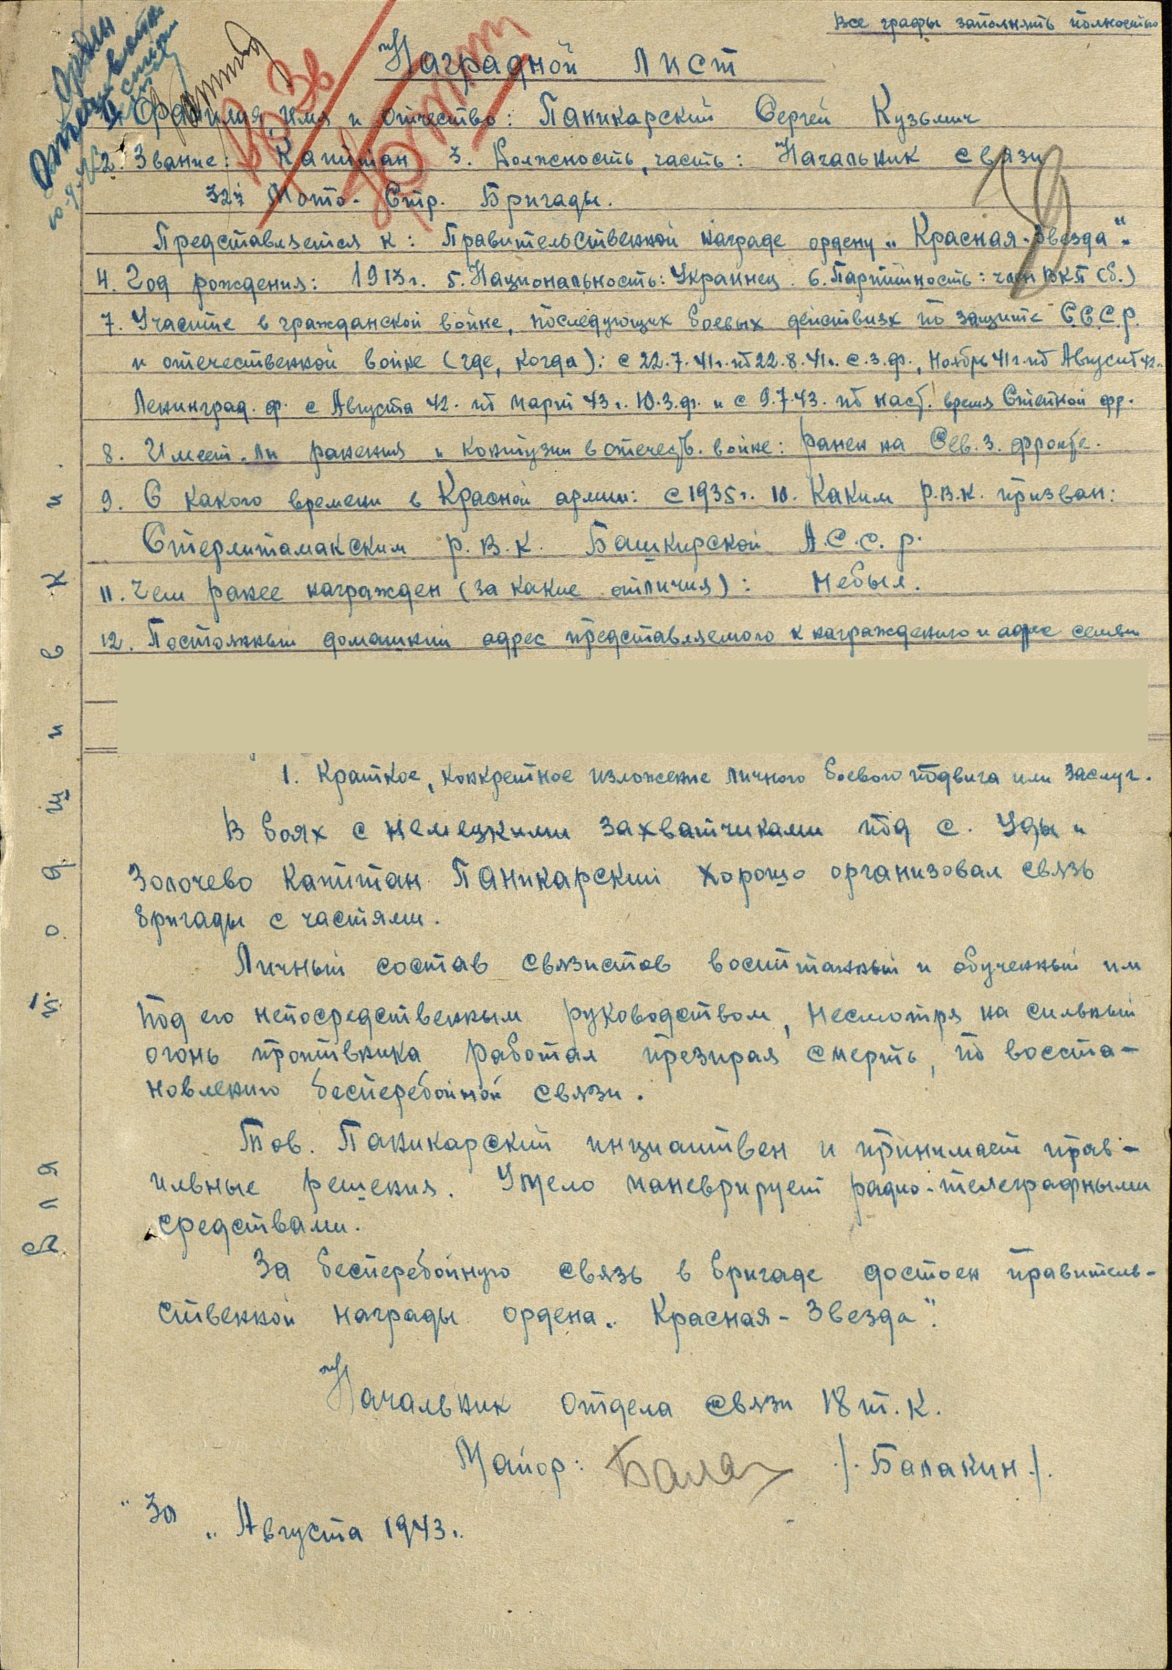 Все графы заполнять полностью
Наградной лист
Фамилия, имя и отчество: Паникарский Сергей Кузьмич
2. Звание: Капитан 3. Должность, часть: Начальник связи
32й Мото-Стр. Бригады.
Представляется к: Правительственной награде ордену „Красная-Звезда".
4. Год рождения: 1913г. 5. Национальность: Украинец. 6. Партийность: член ВКП(б.)
7. Участие в гражданской войне, последующих боевых действиях по защите С.С.С.Р.
и отечественной войне (где, когда): с 22.7.41г. по 22.8.41г. с.з.ф., Ноябрь 41г. по Август 42г.
Ленинград. ф. с Августа 42. по март 43г. Ю.З.ф. и с 9.7.43. по наст. время Степной фр.
8. Имеет-ли ранения и контузии в отечеств. войне: ранен на Сев. З. фронте.
9. С какого времени в Красной армии: с 1935г. 10. Каким р.в.к. призван:
Стерлитамакским р.в.к. Башкирской А.С.С.Р.
11. Чем ранее награжден (за какие отличия): небыл.
12. Постоянный домашний адрес представляемого к награждению и адрес семьи
1. Краткое, конкретное изложение личного боевого подвига или заслуг.
В боях с немецкими захватчиками под с. Уды и
Золочево Капитан Паникарский хорошо организовал связь
бригады с частями.
Личный состав связистов воспитанный и обученный им
под его непосредственным руководством, несмотря на сильный
огонь противника работал презирая смерть, по восста-
новлению бесперебойной связи.
Тов. Паникарский инциативен и принимает прав-
ильные решения. Умело маневрирует радио-телеграфными
средствами.
За бесперебойную связь в бригаде достоен правитель-
ственной награды ордена „Красная-Звезда".
Начальник отдела связи 18 т.к.
Майор: /Балакин/.
„ Августа 1943г.
Для подшивки.